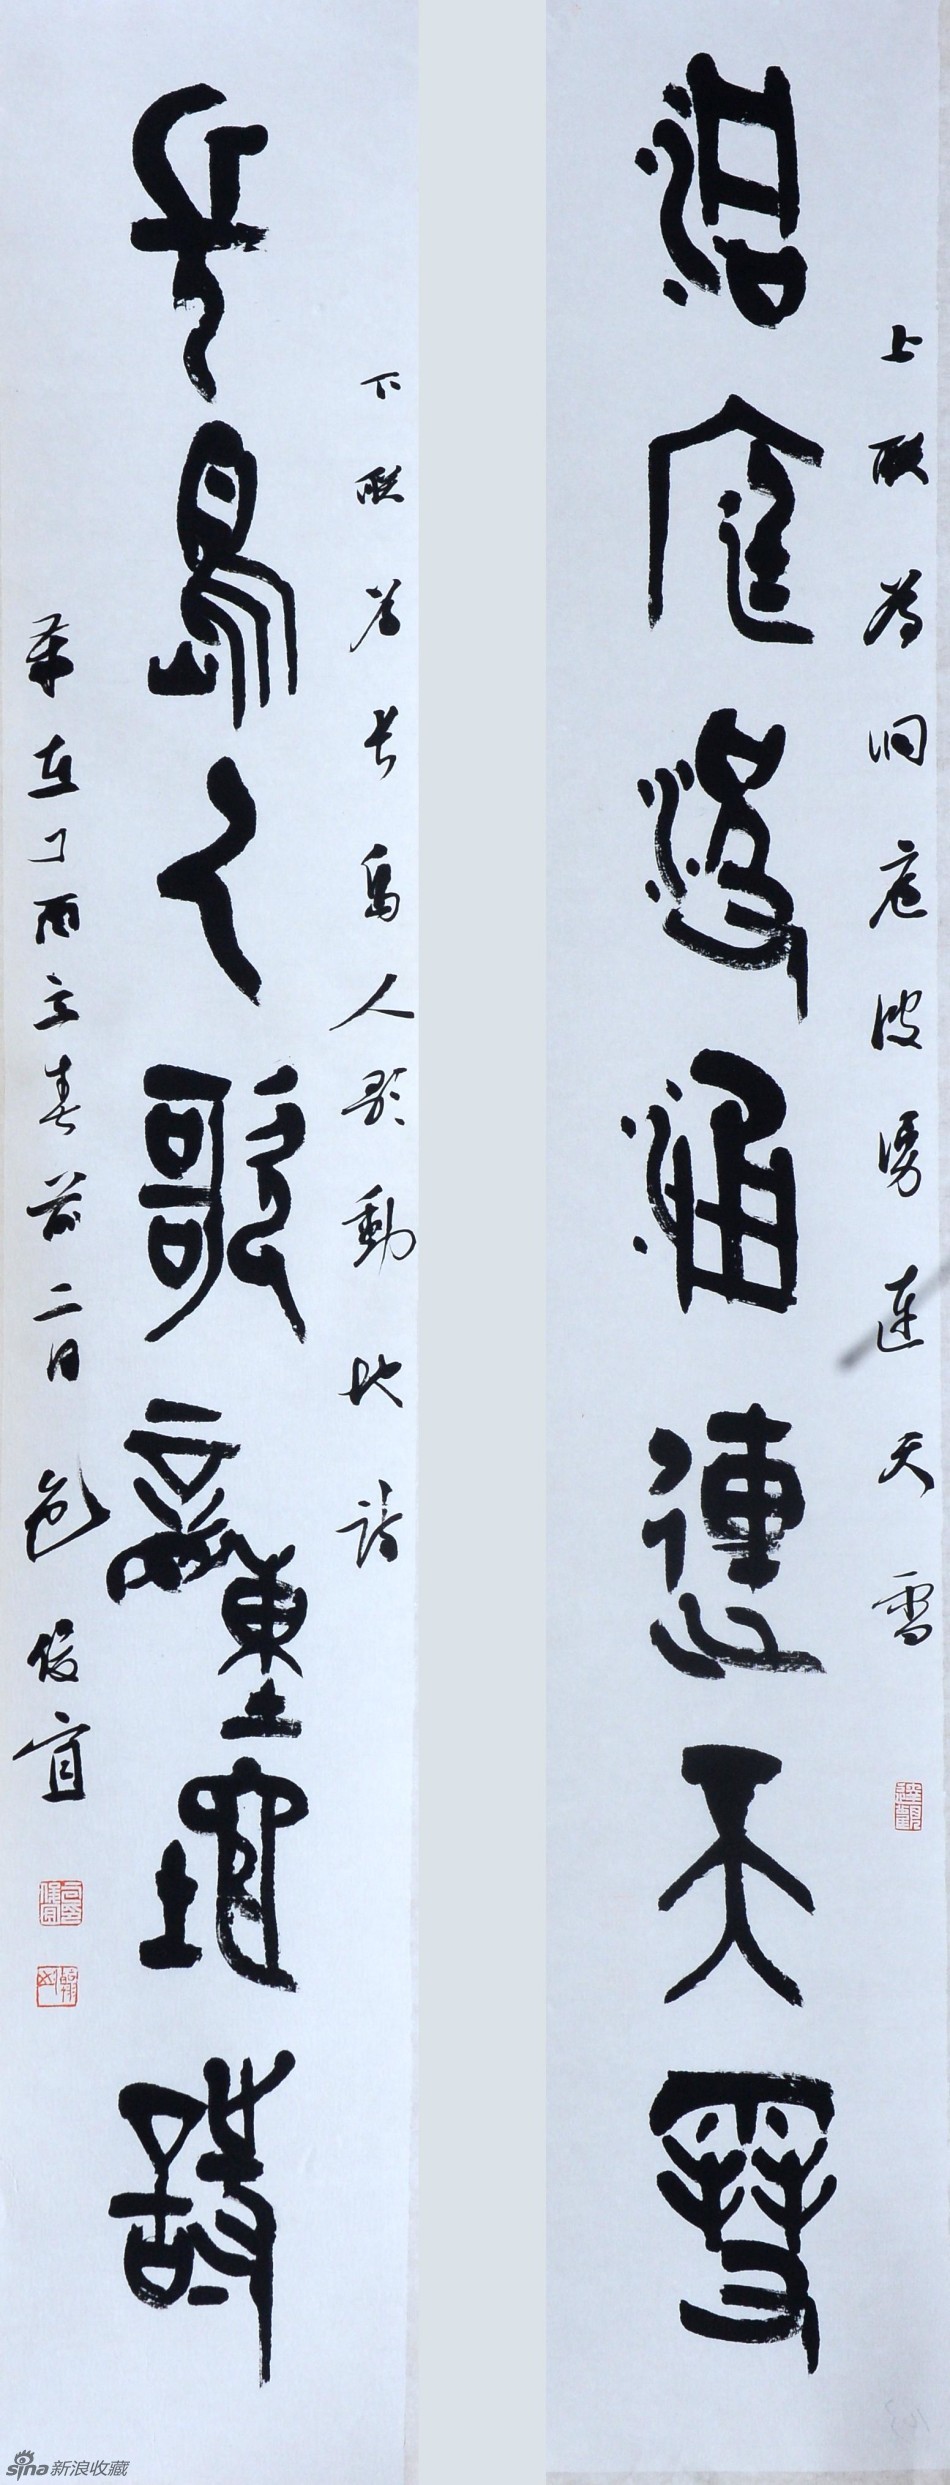 上联为洞庭波湧連天雪
洞庭波涌連天雪
下联为长岛人歌動地诗
長島人歌動地詩
岁在丁酉立春前二日 包俊宜
sina新浪收藏